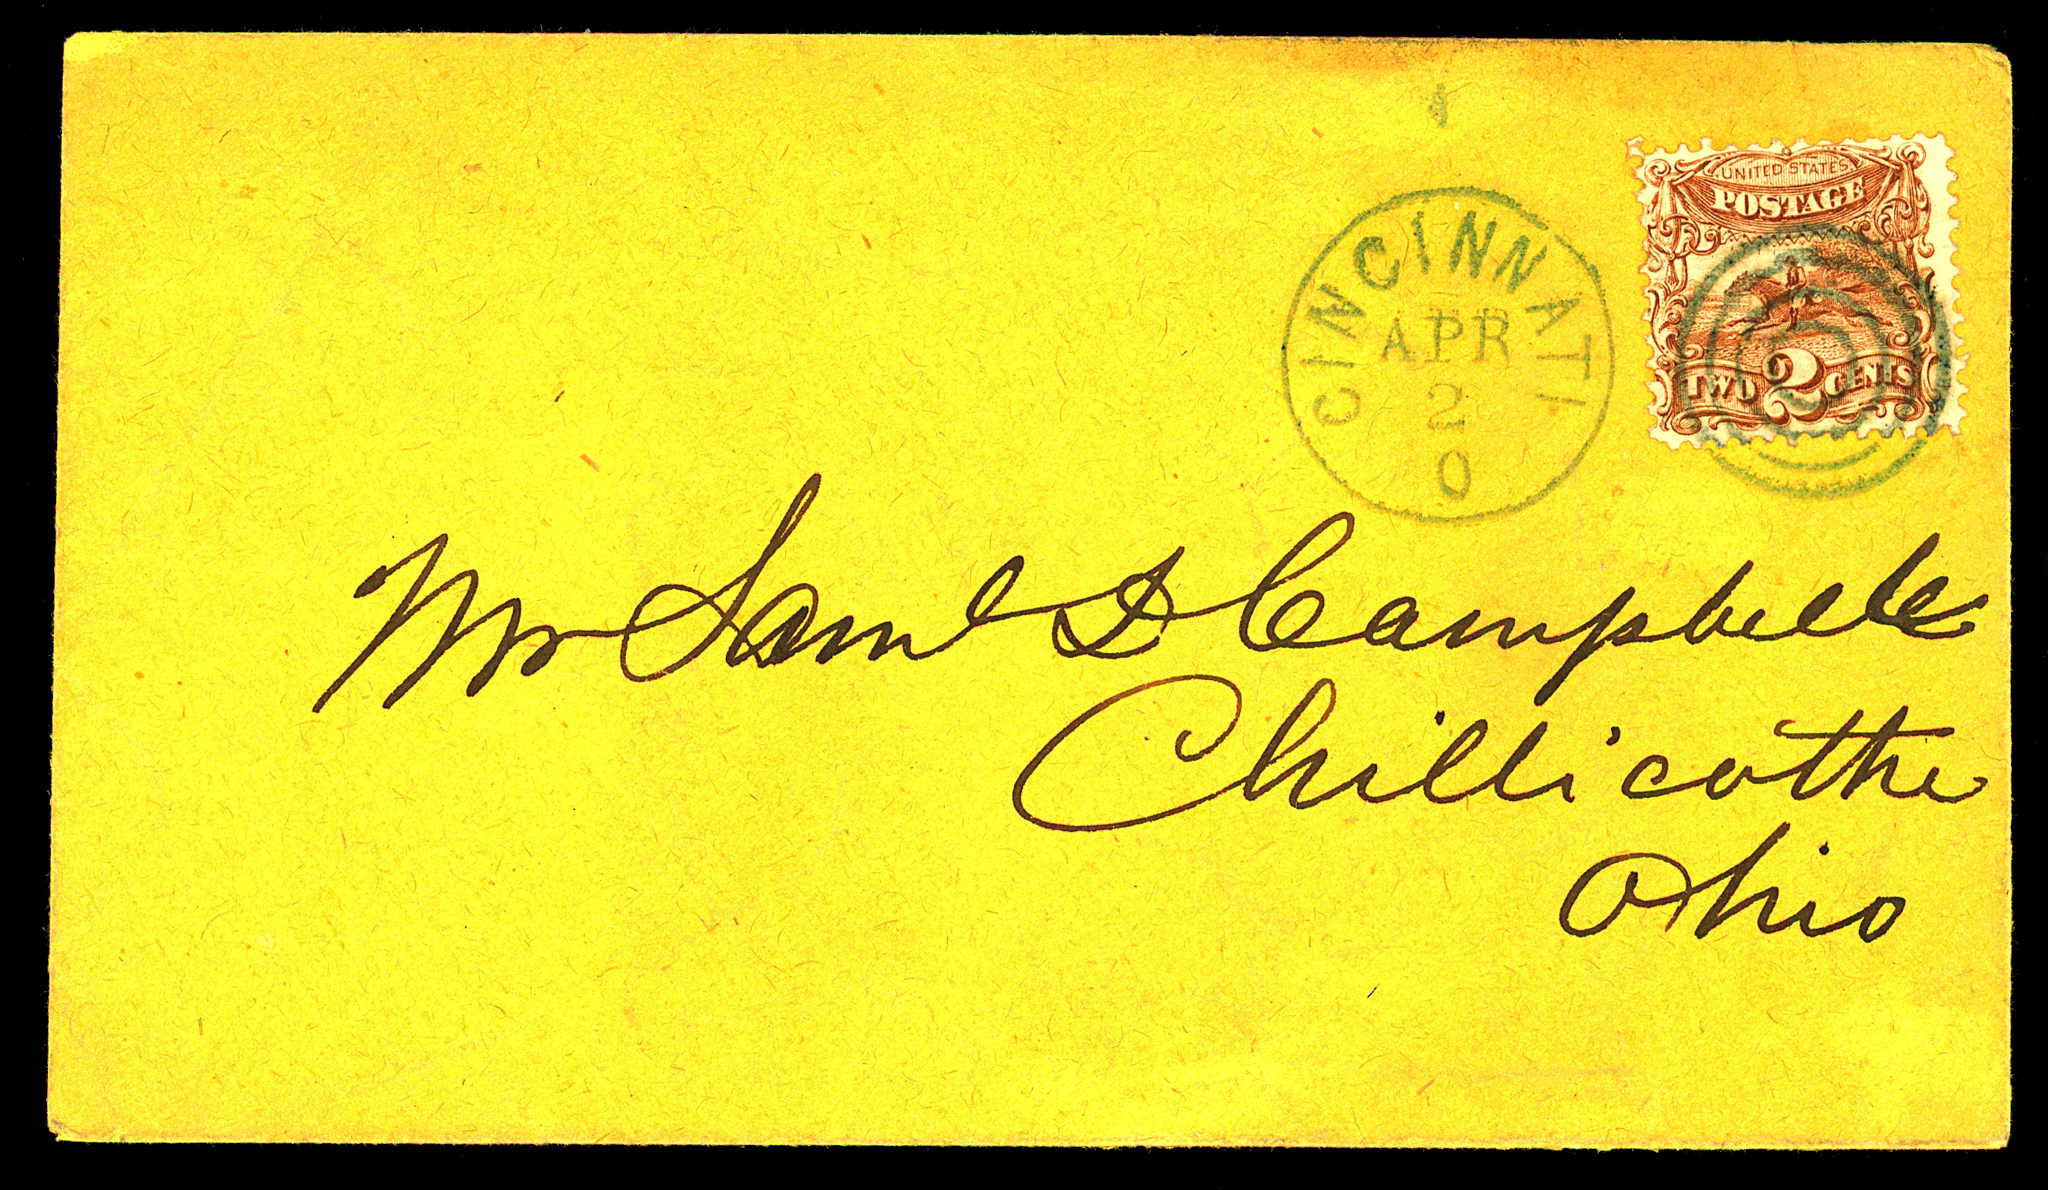 UNITED STATES
POSTAGE
TWO 2 CENTS
CINCINNATI
APR
2
O
Mr Saml Campbelle
Chillicothe
Ohio